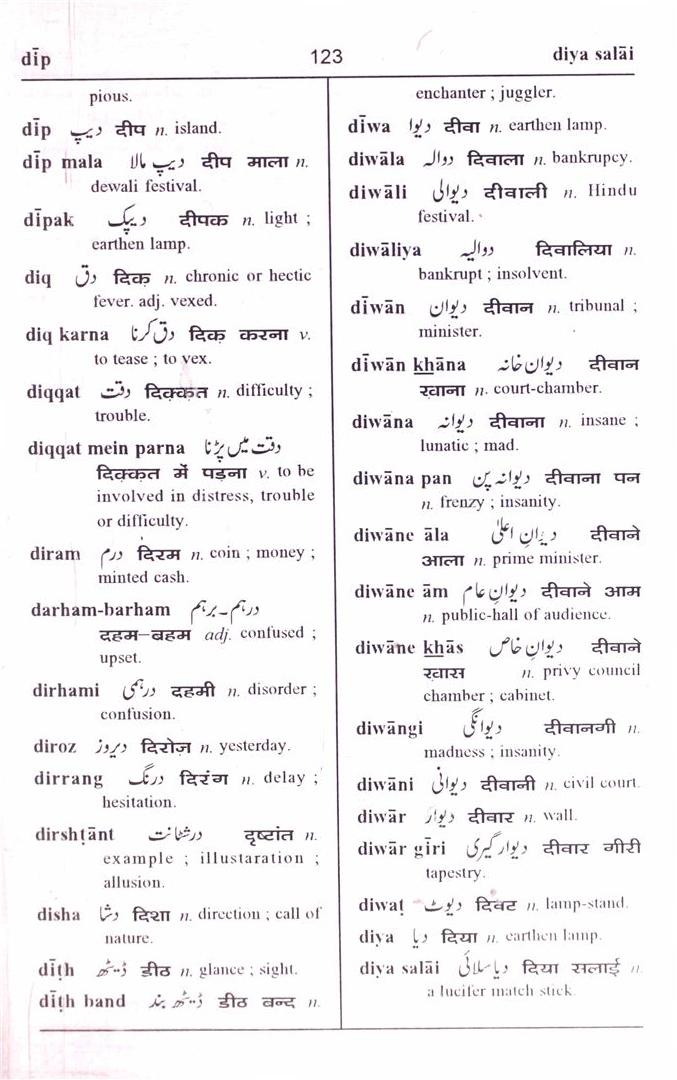 dīp
123
diya salāi
pious.
dīp دیپ दीप n. island.
dīp mala دیپ مالا दीप माला n.
dewali festival.
dīpak دیپک दीपक n. light ;
earthen lamp.
diq دق दिक़ n. chronic or hectic
fever. adj. vexed.
diq karna دق کرنا दिक़ करना v.
to tease ; to vex.
diqqat دقت दिक़्क़त n. difficulty ;
trouble.
diqqat mein parna دقت میں پڑنا
दिक़्क़त में पड़ना v. to be
involved in distress, trouble
or difficulty.
diram درم दिरम n. coin ; money ;
minted cash.
darham-barham درہم۔برہم
दहम–बहम adj. confused ;
upset.
dirhami درہمی दहमी n. disorder ;
confusion.
diroz دیروز दिरोज़ n. yesterday.
dirrang درنگ दिरंग n. delay ;
hesitation.
dirshṭānt درشٹانت दृष्टांत n.
example ; illustaration ;
allusion.
disha دشا दिशा n. direction ; call of
nature.
dīṭh ڈیٹھ डीठ n. glance ; sight.
dīṭh band ڈیٹھ بند डीठ बन्द n.
enchanter ; juggler.
dīwa دیوا दीवा n. earthen lamp.
diwāla دوالہ दिवाला n. bankrupcy.
diwāli دیوالی दीवाली n. Hindu
festival.
diwāliya دوالیہ दिवालिया n.
bankrupt ; insolvent.
dīwān دیوان दीवान n. tribunal ;
minister.
dīwān khāna دیوان خانہ दीवान
ख़ाना n. court-chamber.
diwāna دیوانہ दीवाना n. insane ;
lunatic ; mad.
diwāna pan دیوانہ پن दीवाना पन
n. frenzy ; insanity.
diwāne āla دیوانِ اعلیٰ दीवाने
आला n. prime minister.
diwāne ām دیوانِ عام दीवाने आम
n. public-hall of audience.
diwāne khās دیوانِ خاص दीवाने
ख़ास n. privy council
chamber ; cabinet.
diwāngi دیوانگی दीवानगी n.
madness ; insanity.
diwāni دیوانی दीवानी n. civil court.
diwār دیوار दीवार n. wall.
diwār gīri دیوار گیری दीवार गीरी
tapestry.
diwaṭ دیوٹ दिवट n. lamp-stand.
diya دیا दिया n. earthen lamp.
diya salāi دیا سلائی दिया सलाई n.
a lucifer match stick.